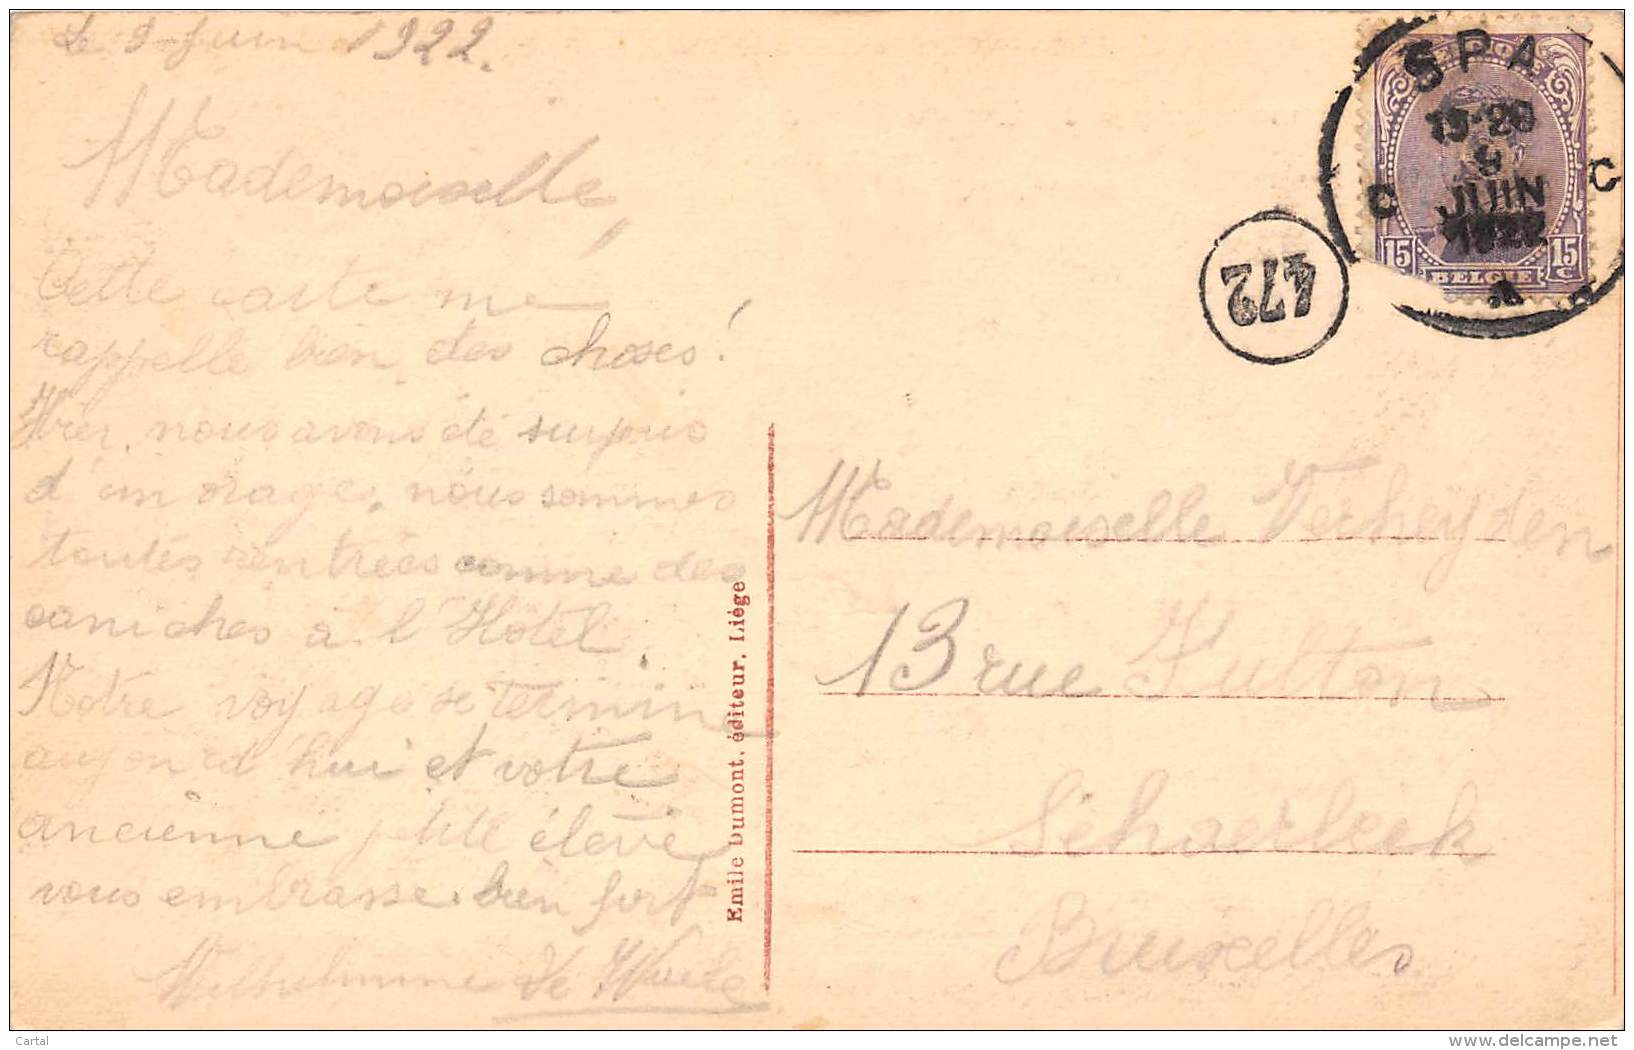 Le 9 Juin 1922.
Mademoiselle,
Cette carte me
rappelle bien des choses!
Hier, nous avons été surpris
d'un orage, nous sommes
toutes rentrées comme des
caniches à l'Hôtel.
Notre voyage se termine
aujourd'hui et votre
ancienne petite élève
vous embrasse bien fort
Wilhelmine de
Emile Dumont, éditeur, Liége
SPA
15-20
9
JUIN
1922
C C
A
15 15
BELGIE
C
472
Mademoiselle Verheyden
13 rue Fulton
Schaerbeek
Bruxelles
Cartal
delcampe.net